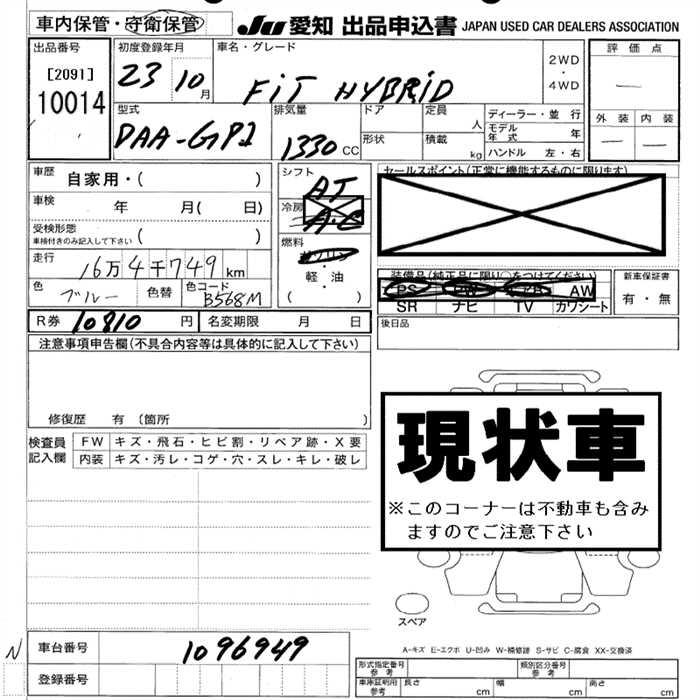 車内保管・守衛保管 JU 愛知 出品申込書 JAPAN USED CAR DEALERS ASSOCIATION
出品番号
[2091]
10014
初度登録年月
23 10月
車名・グレード
FiT HYBRiD
2WD
・
4WD
評価点
—
外装 内装
— —
型式
DAA-GP1
排気量
1330 CC
ドア
形状
定員 人
積載 kg
ディーラー・並行
モデル年式 年
ハンドル 左・右
車歴 自家用・( )
車検 年 月( 日)
受検形態
車検付きのみ記入して下さい ( )
走行 16万4千749km
色 ブルー 色替 色コード B568M
シフト AT
冷房 A・C
燃料 ガソリン
・
軽・油
( )
セールスポイント(正常に機能するものに限ります)
装備品(純正品に限り○をつけてください)
PS PW エアB AW
SR ナビ TV カワシート
新車保証書
有・無
後日品
R券 10810 円 名変期限 月 日
注意事項申告欄(不具合内容等は具体的に記入して下さい)
修復歴 有(箇所 )
検査員記入欄
FW キズ・飛石・ヒビ割・リペア跡・X要
内装 キズ・汚レ・コゲ・穴・スレ・キレ・破レ
現状車
※このコーナーは不動車も含み
ますのでご注意下さい
スペア
A-キズ E-エクボ U-凹み W-補修跡 S-サビ C-腐食 XX-交換済
N
車台番号 1096949
登録番号
形式指定番号
参考
類別区分番号
参考
車庫証明用
参考
長さ cm 幅 cm 高さ cm